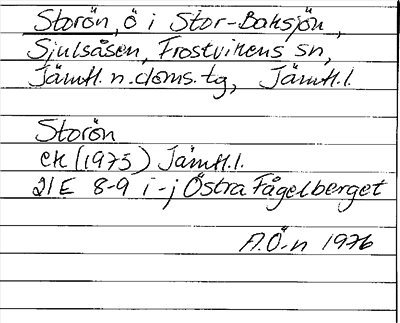 Storön, ö i Stor-Baksjön,
Sjulsåsen, Frostvikens sn,
Jämtl. n. doms. tg, Jämtl. l.
Storön
ek (1975) Jämtl. l.
21E 8-9 i-j Östra Fågelberget
A.Ö-n 1976